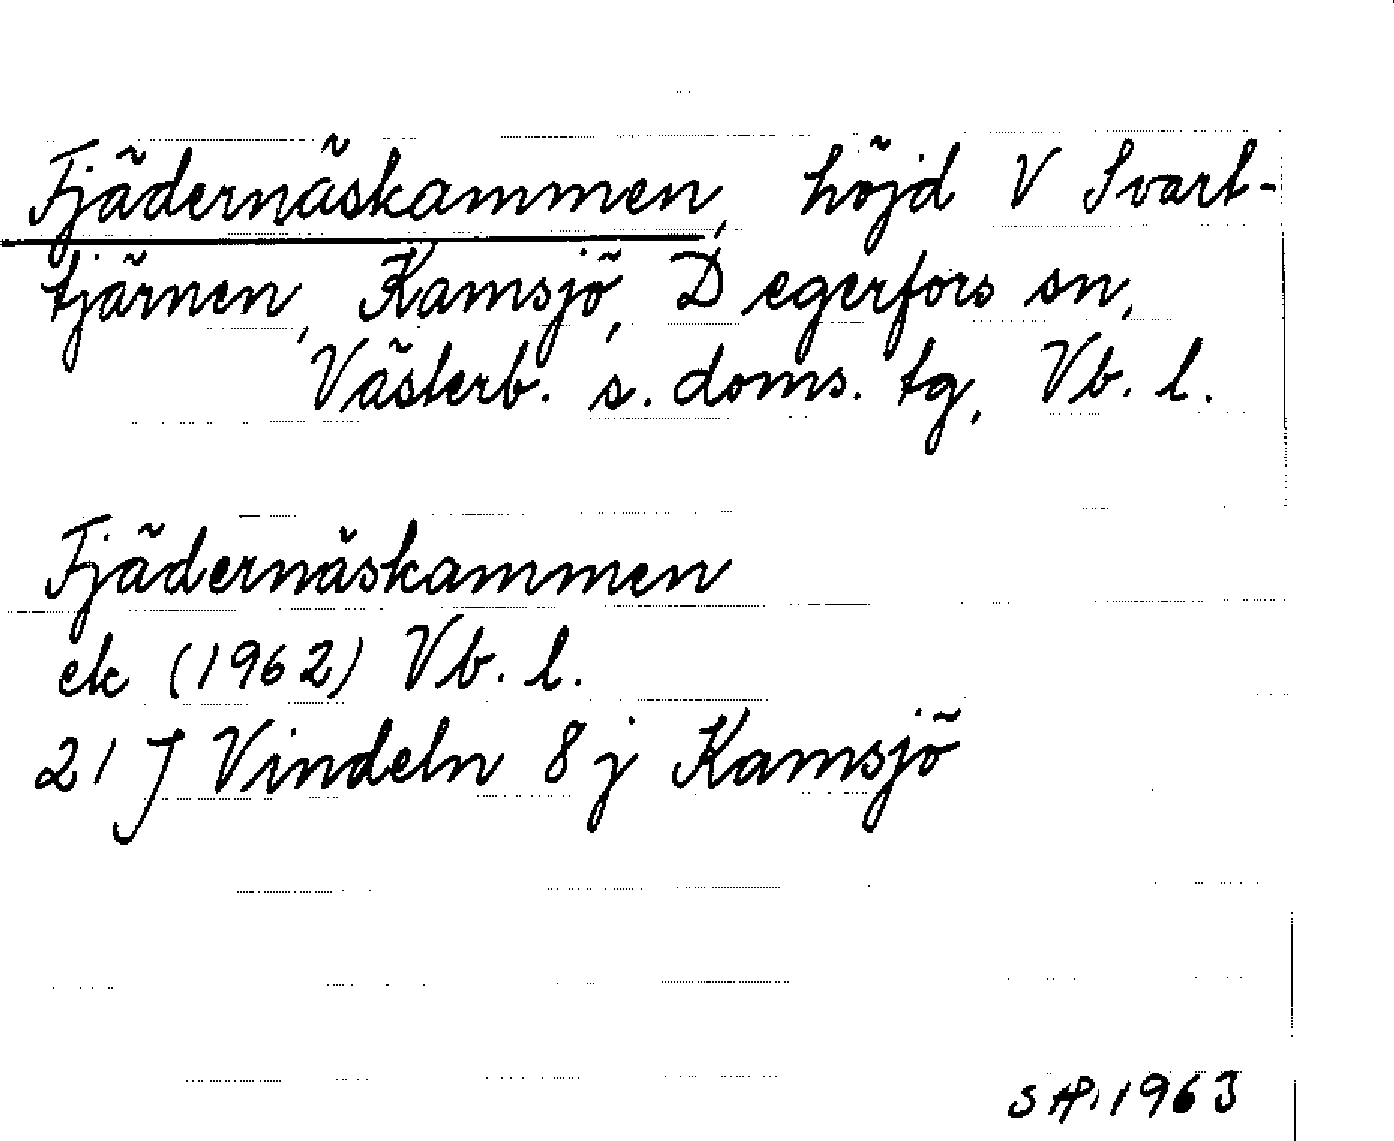 Fjädernäskammen, höjd V Svart-
tjärnen, Kamsjö, Degerfors sn,
Västerb. s. doms. tg, Vb. l.
Fjädernäskammen
ek (1962) Vb. l.
21 J Vindeln 8 j Kamsjö
1963